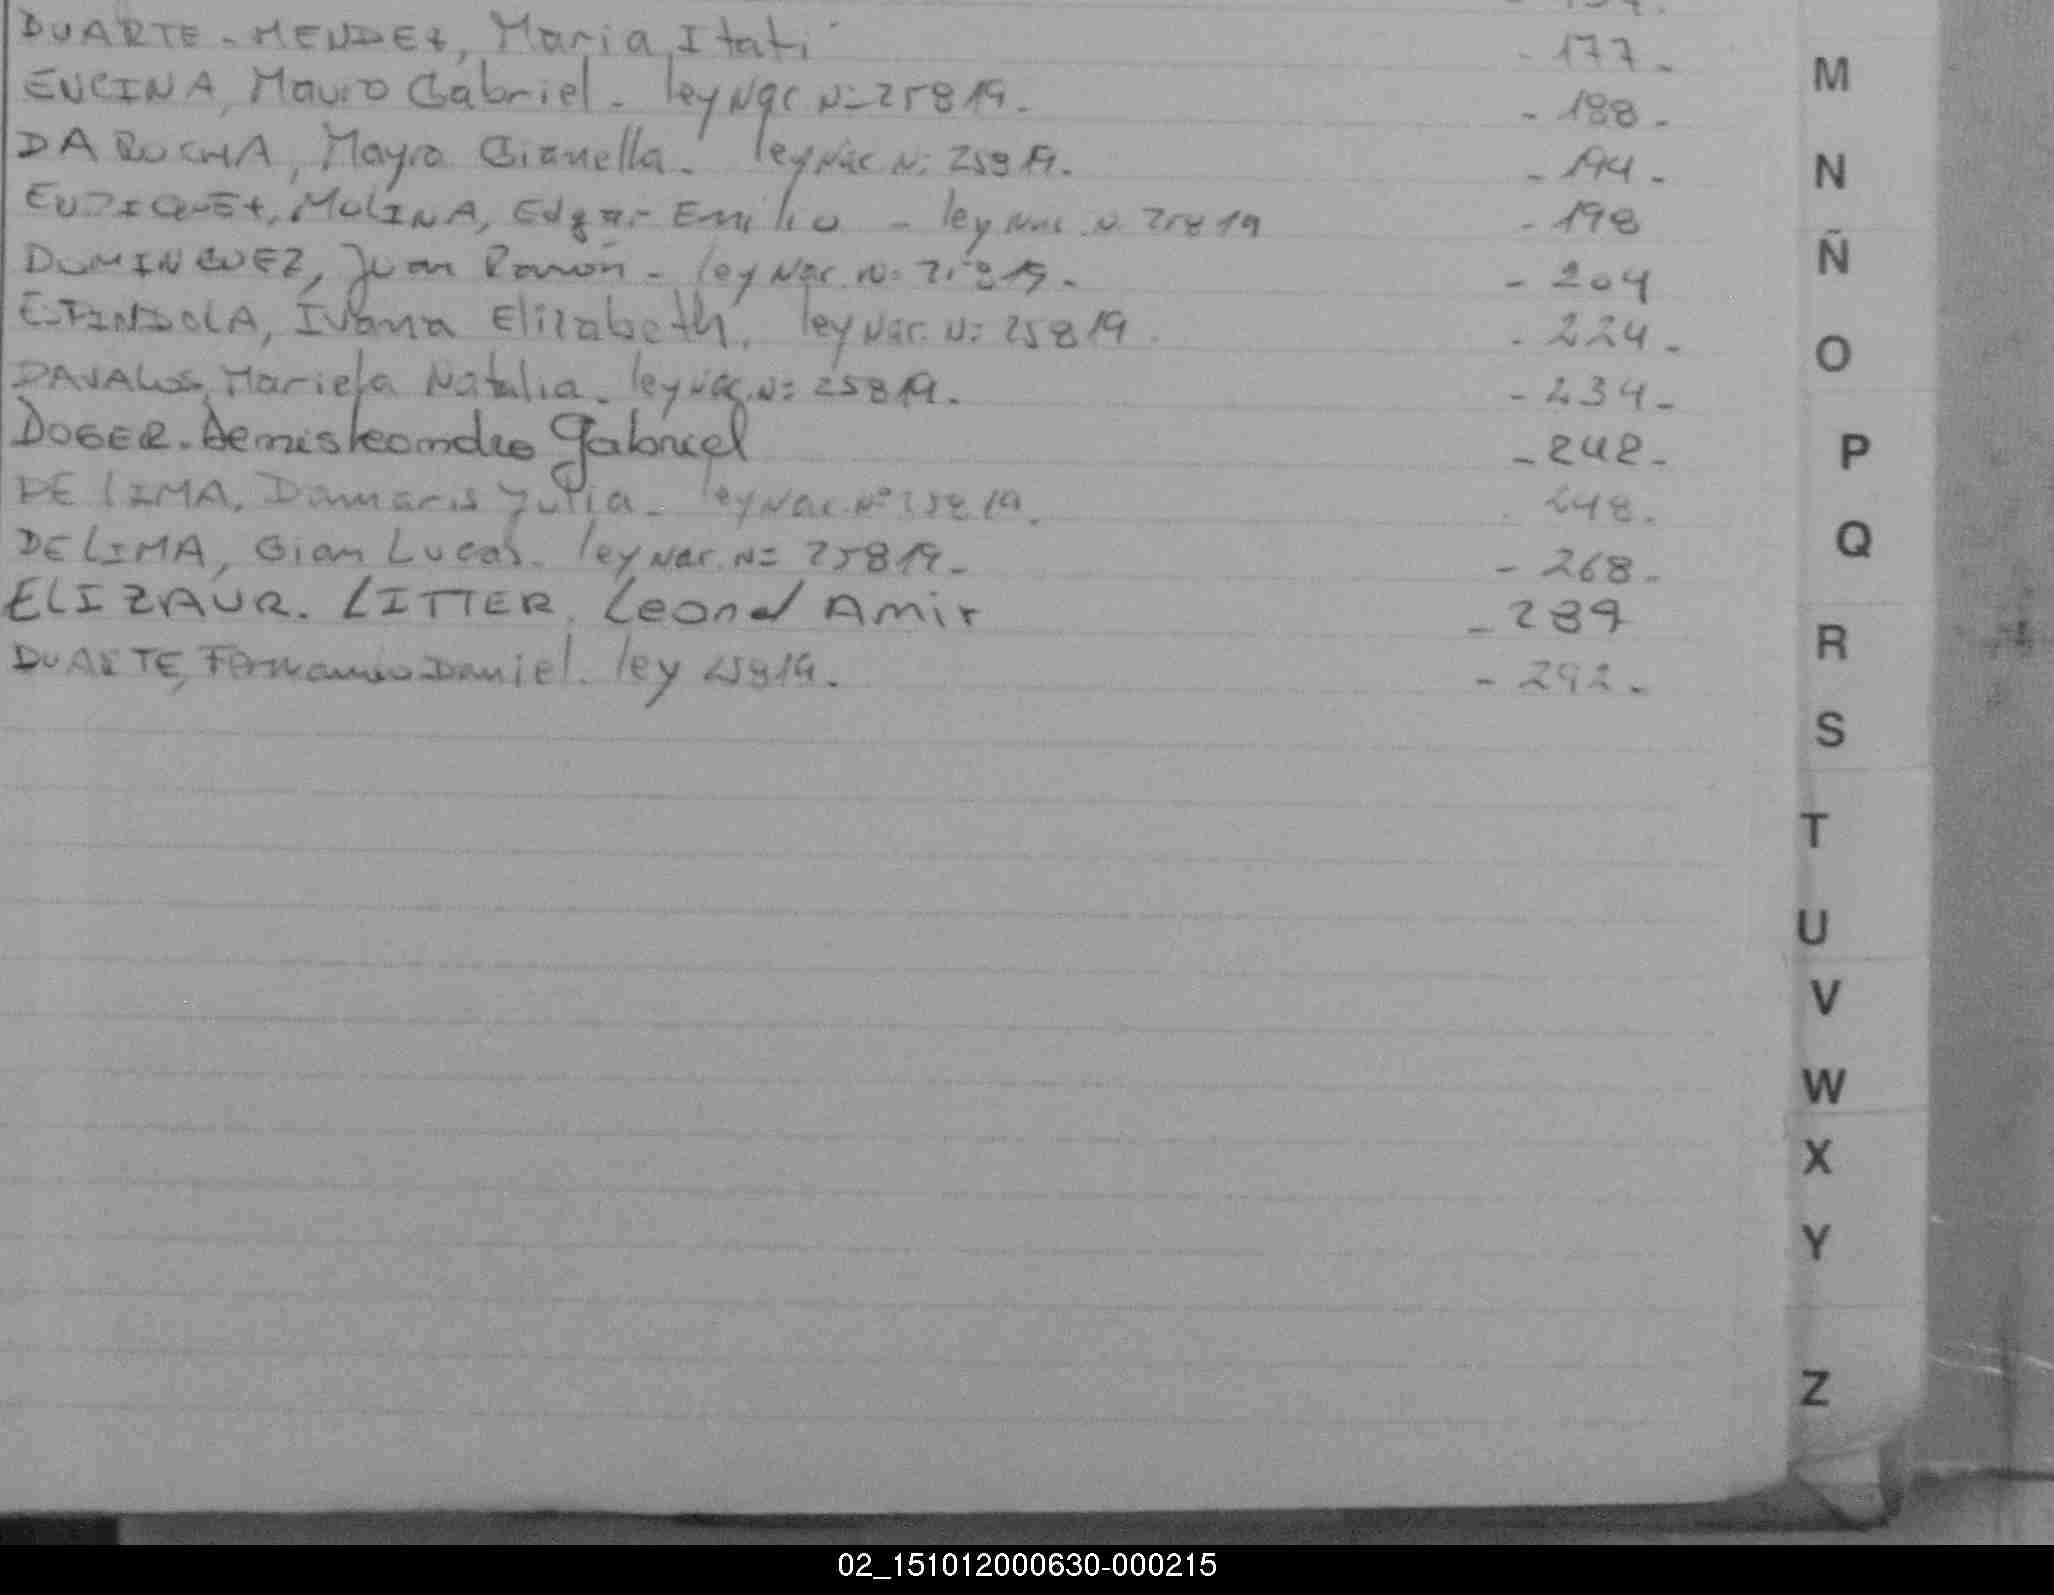 DUARTE - MENDEZ, Maria Itati - 177 -
ENCINA, Mauro Gabriel - ley Nac N= 25819. - 188 -
DA ROCHA, Mayra Gianella. ley Nac N: 25819. - 194 -
MOLINA, Edgar Emilio - ley Nac. N. 25819 - 198
DOMINGUEZ, Juan Ramón - ley Nac. N: 25819. - 204
ESPINDOLA, Ivana Elizabeth. ley Nac. N: 25819. - 224 -
DAVALOS, Mariela Natalia. ley Nac. N= 25819. - 234 -
DOGER. Gabriel - 242 -
DE LIMA, Damaris Julia - ley Nac. Nº 25819. 248.
DE LIMA, Gian Lucas. ley Nac. N= 25819. - 268 -
ELIZAUR. LITTER. Leonel Amir - 289
DUARTE, Fernando Daniel. ley 25819. - 292 -
M
N
Ñ
O
P
Q
R
S
T
U
V
W
X
Y
Z
02_151012000630-000215